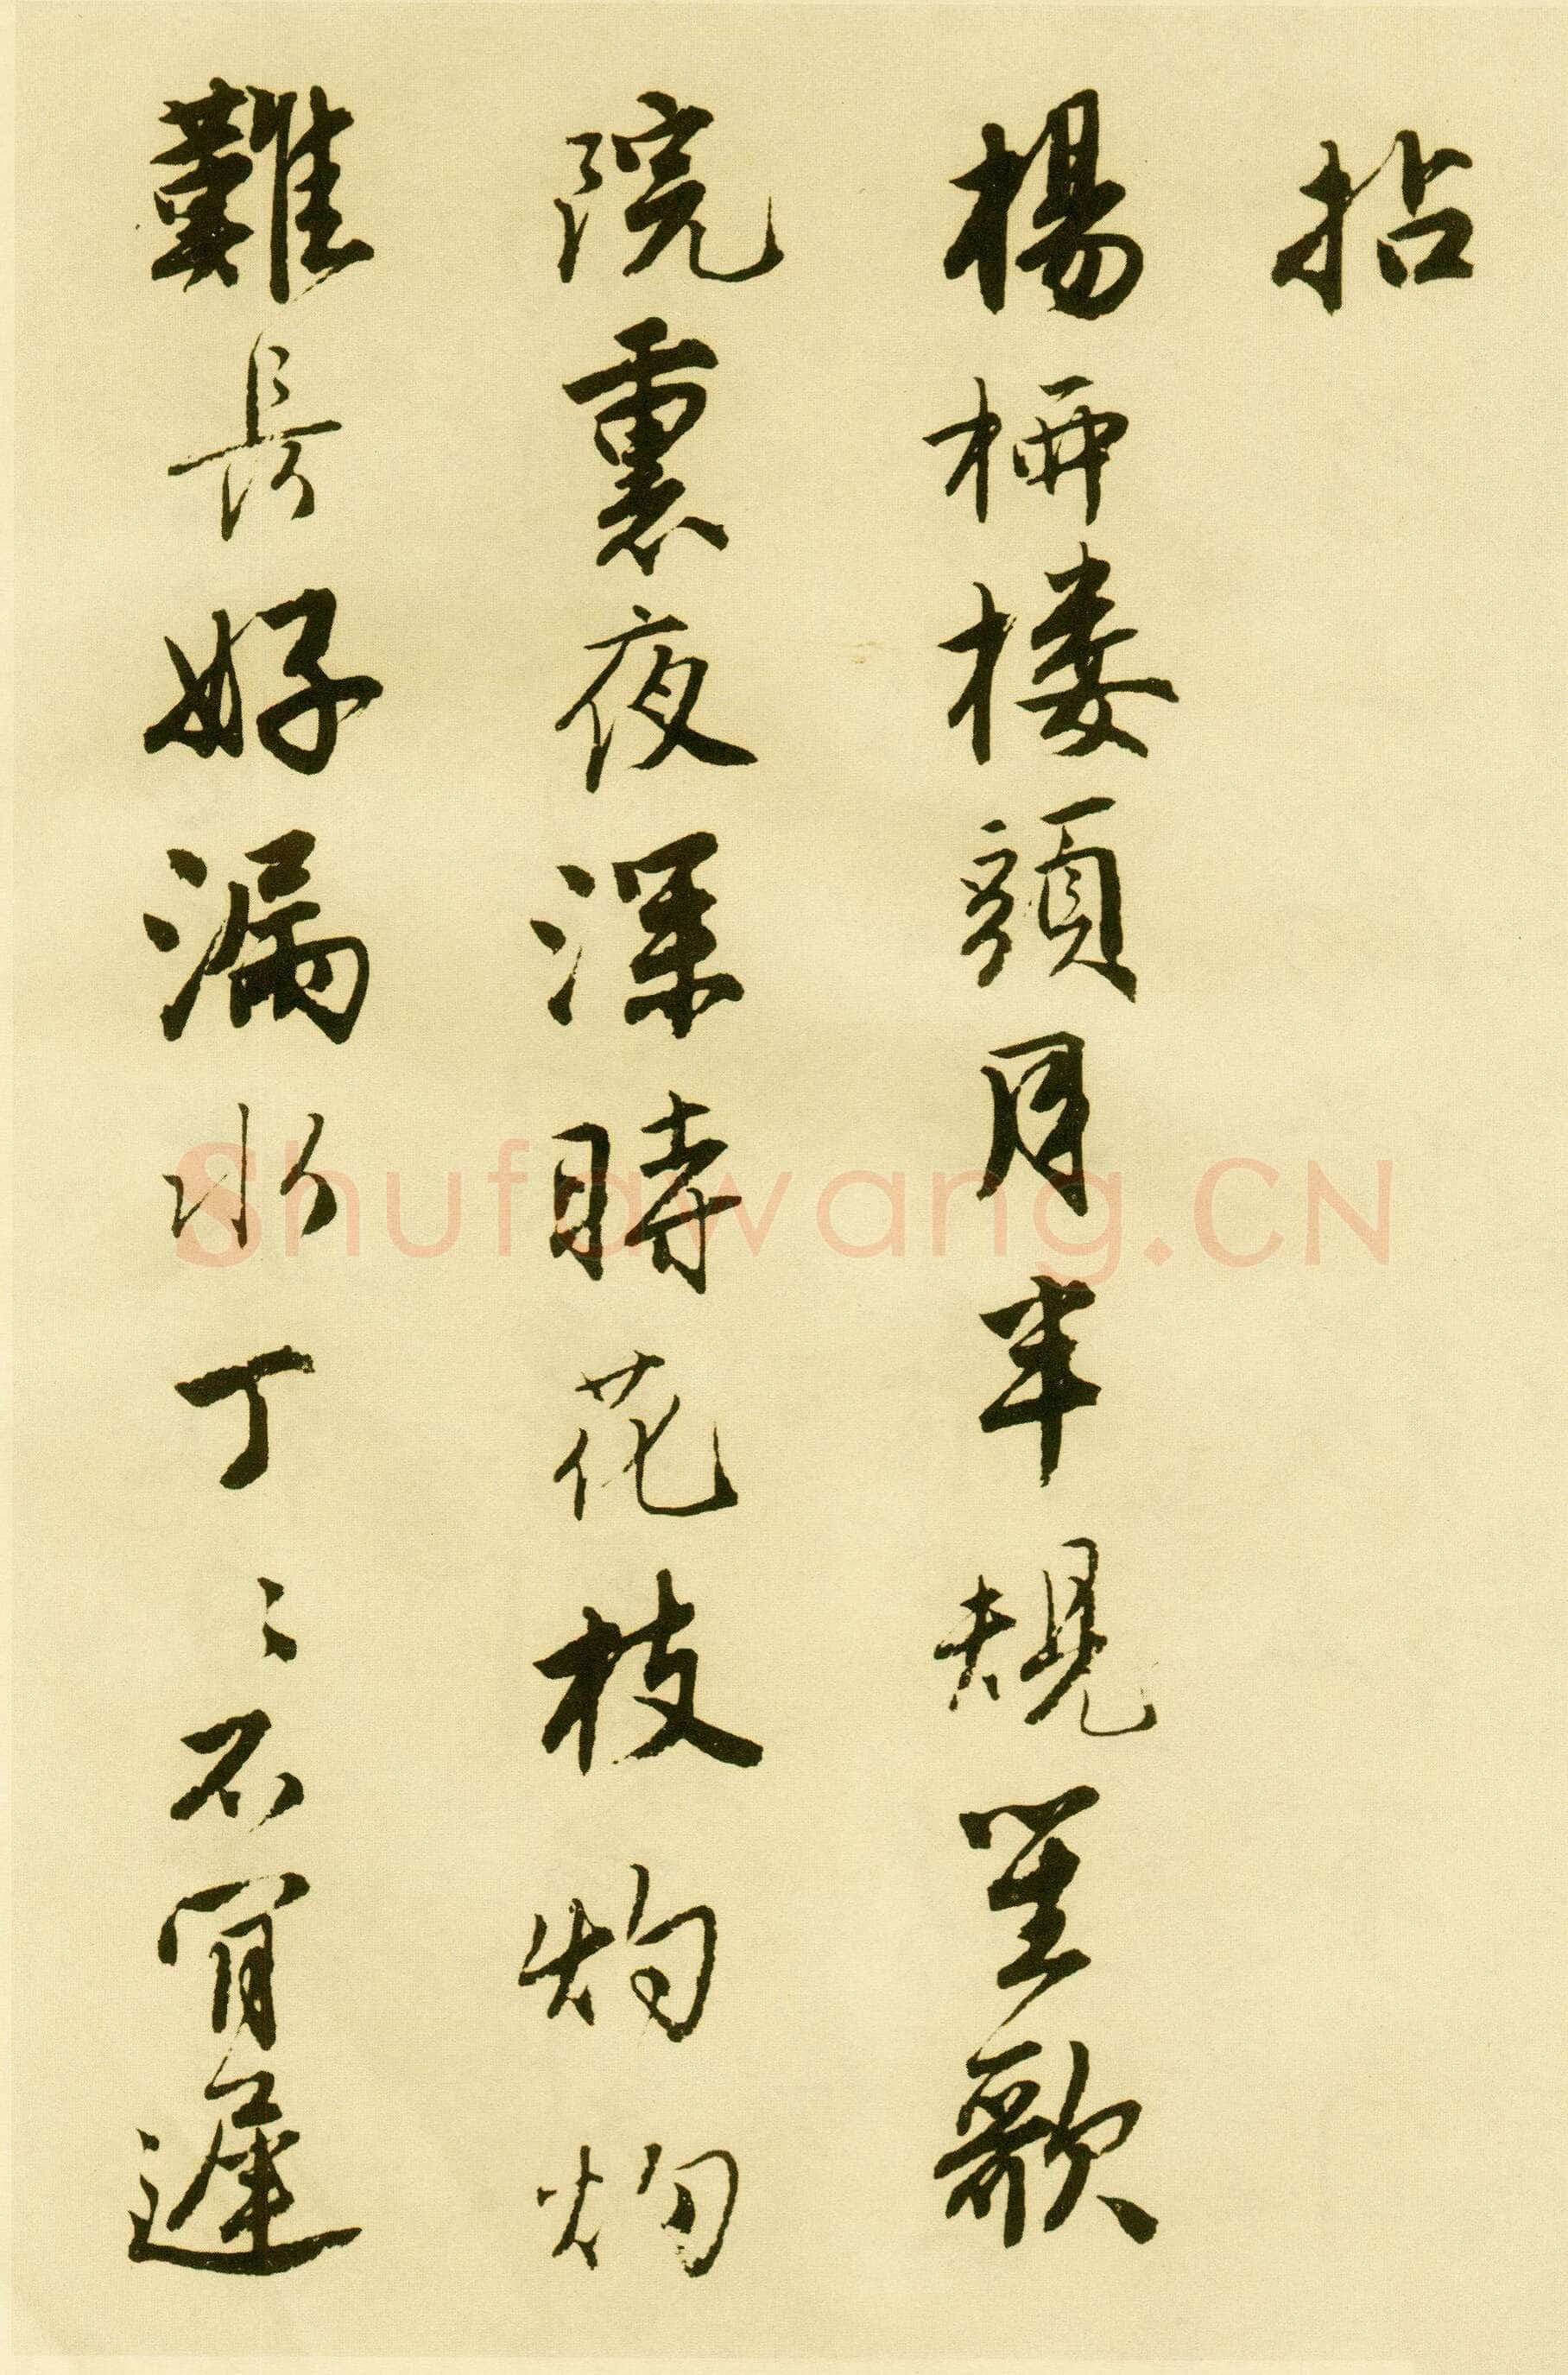 拈
楊柳楼頭月半規笙歌
院裏夜深時花枝灼灼
難長好漏水丁〻不肯遲
Shufawang.CN